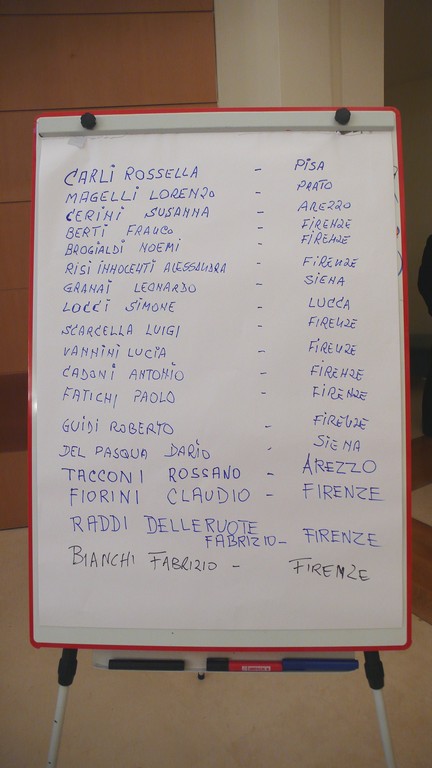 CARLI ROSSELLA - PISA
MAGELLI LORENZO - PRATO
CERINI SUSANNA - AREZZO
BERTI FRANCO - FIRENZE
BROGIALDI NOEMI - FIRENZE
RISI INNOCENTI ALESSANDRA - FIRENZE
GRANAI LEONARDO - SIENA
LOCCI SIMONE - LUCCA
SCARCELLA LUIGI - FIRENZE
VANNINI LUCIA - FIRENZE
CADONI ANTONIO - FIRENZE
FATICHI PAOLO - FIRENZE
GUIDI ROBERTO - FIRENZE
DEL PASQUA DARIO - SIENA
TACCONI ROSSANO - AREZZO
FIORINI CLAUDIO - FIRENZE
RADDI DELLERUOTE
FABRIZIO - FIRENZE
BIANCHI FABRIZIO - FIRENZE